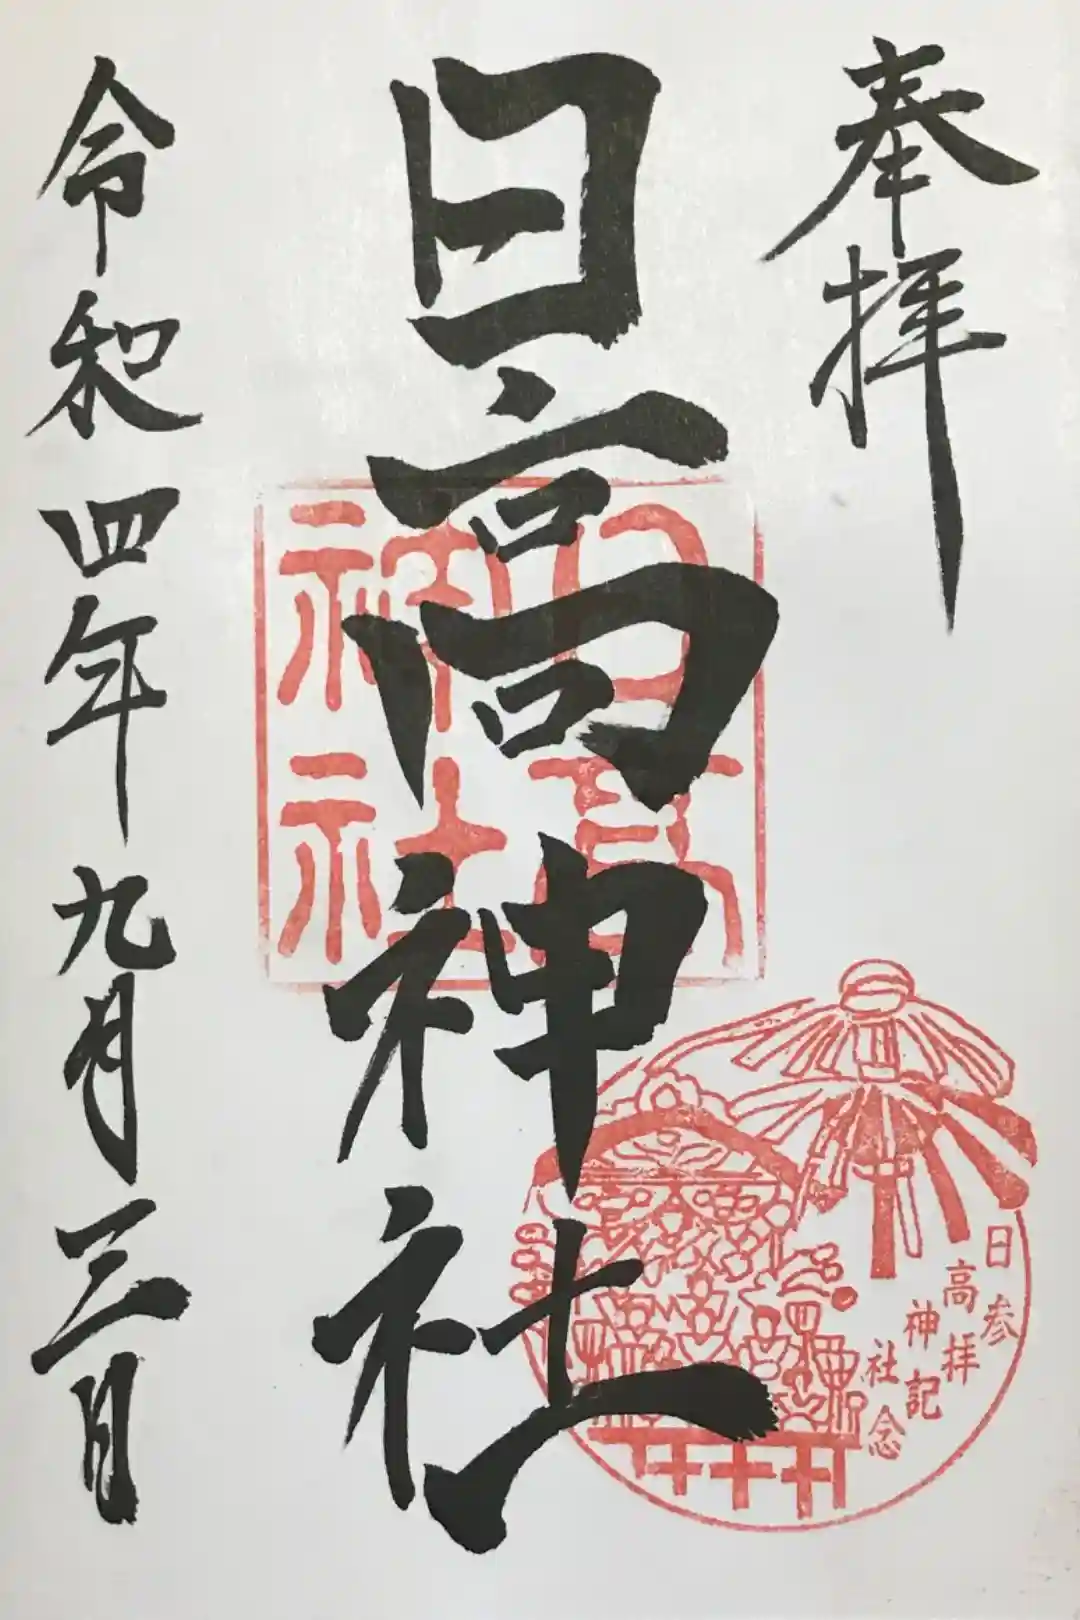 奉拝
日高神社
日高
神社
日高神社
参拝記念
令和四年九月三日